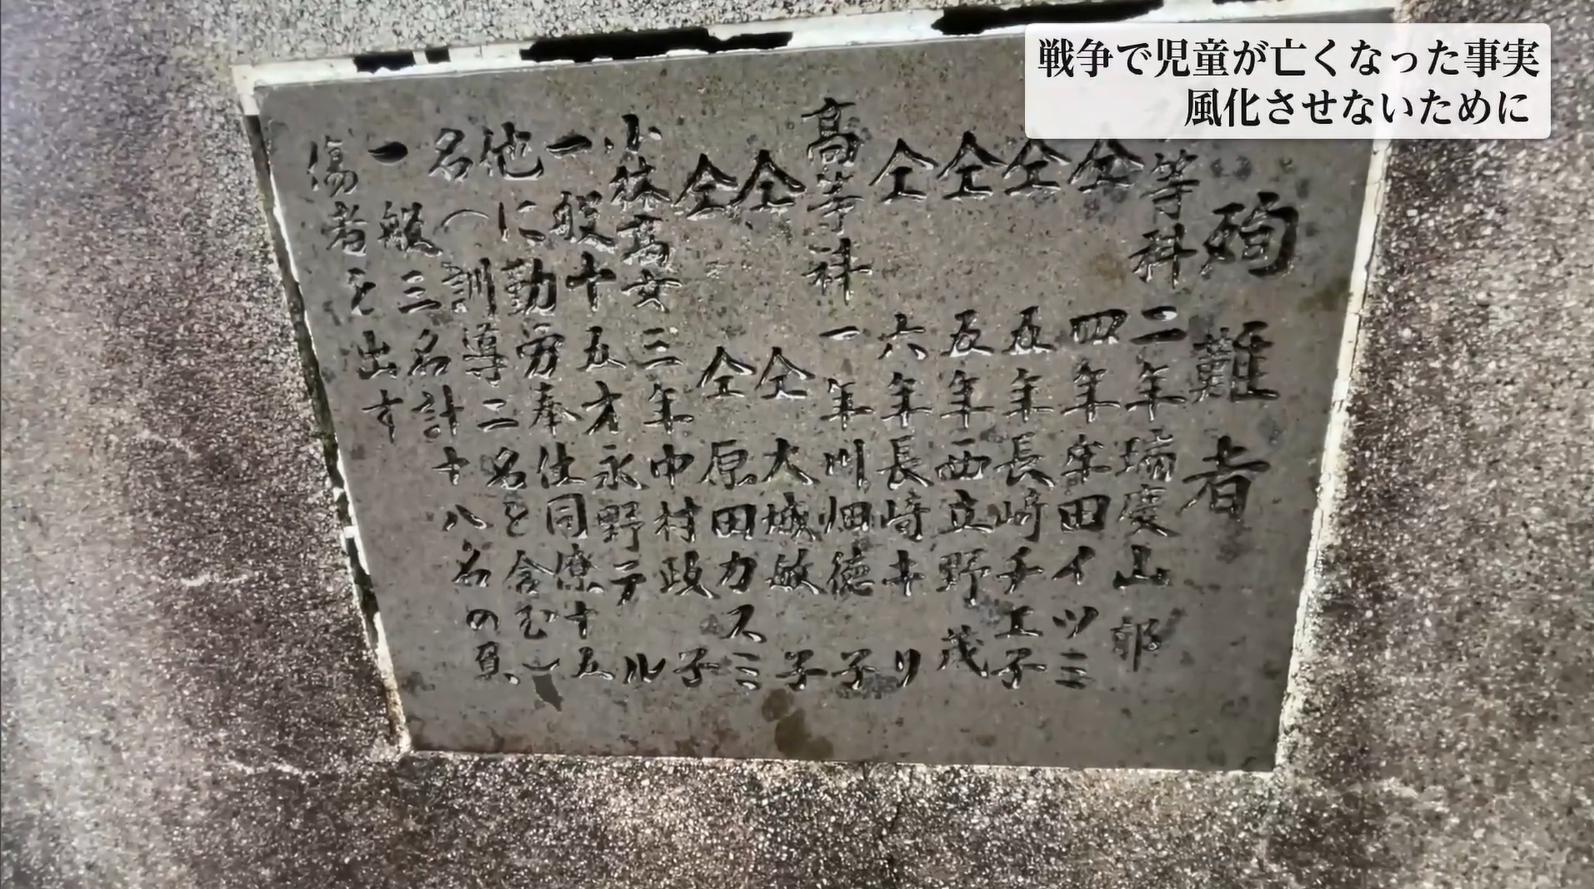 戦争で児童が亡くなった事実
風化させないために
殉難者
等科二年瑞慶山
仝四年牟田イツミ
仝五年長崎チエ子
仝五年西立野茂
仝六年長崎キリ
高等科一年川畑徳子
仝仝大城敏子
仝仝原田カスミ
小林高女三年中村政子
一般十五才永野テル
他に勤労奉仕同僚十五
名(訓導二名を含む)
一般三名計十八名の負
傷者を出す